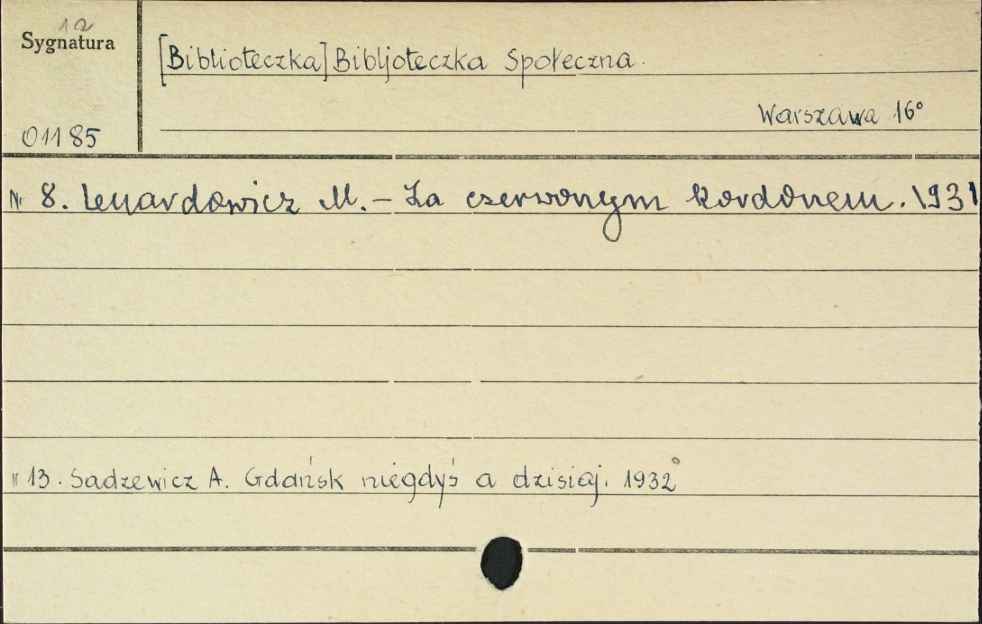 12
Sygnatura
[Biblioteczka] Bibljoteczka Społeczna.
Warszawa 16°
01185
Nr 8. Lenardowicz M. – Za czerwonym kordonem. 1931
" 13. Sadzewicz A. Gdańsk niegdyś a dzisiaj. 1932